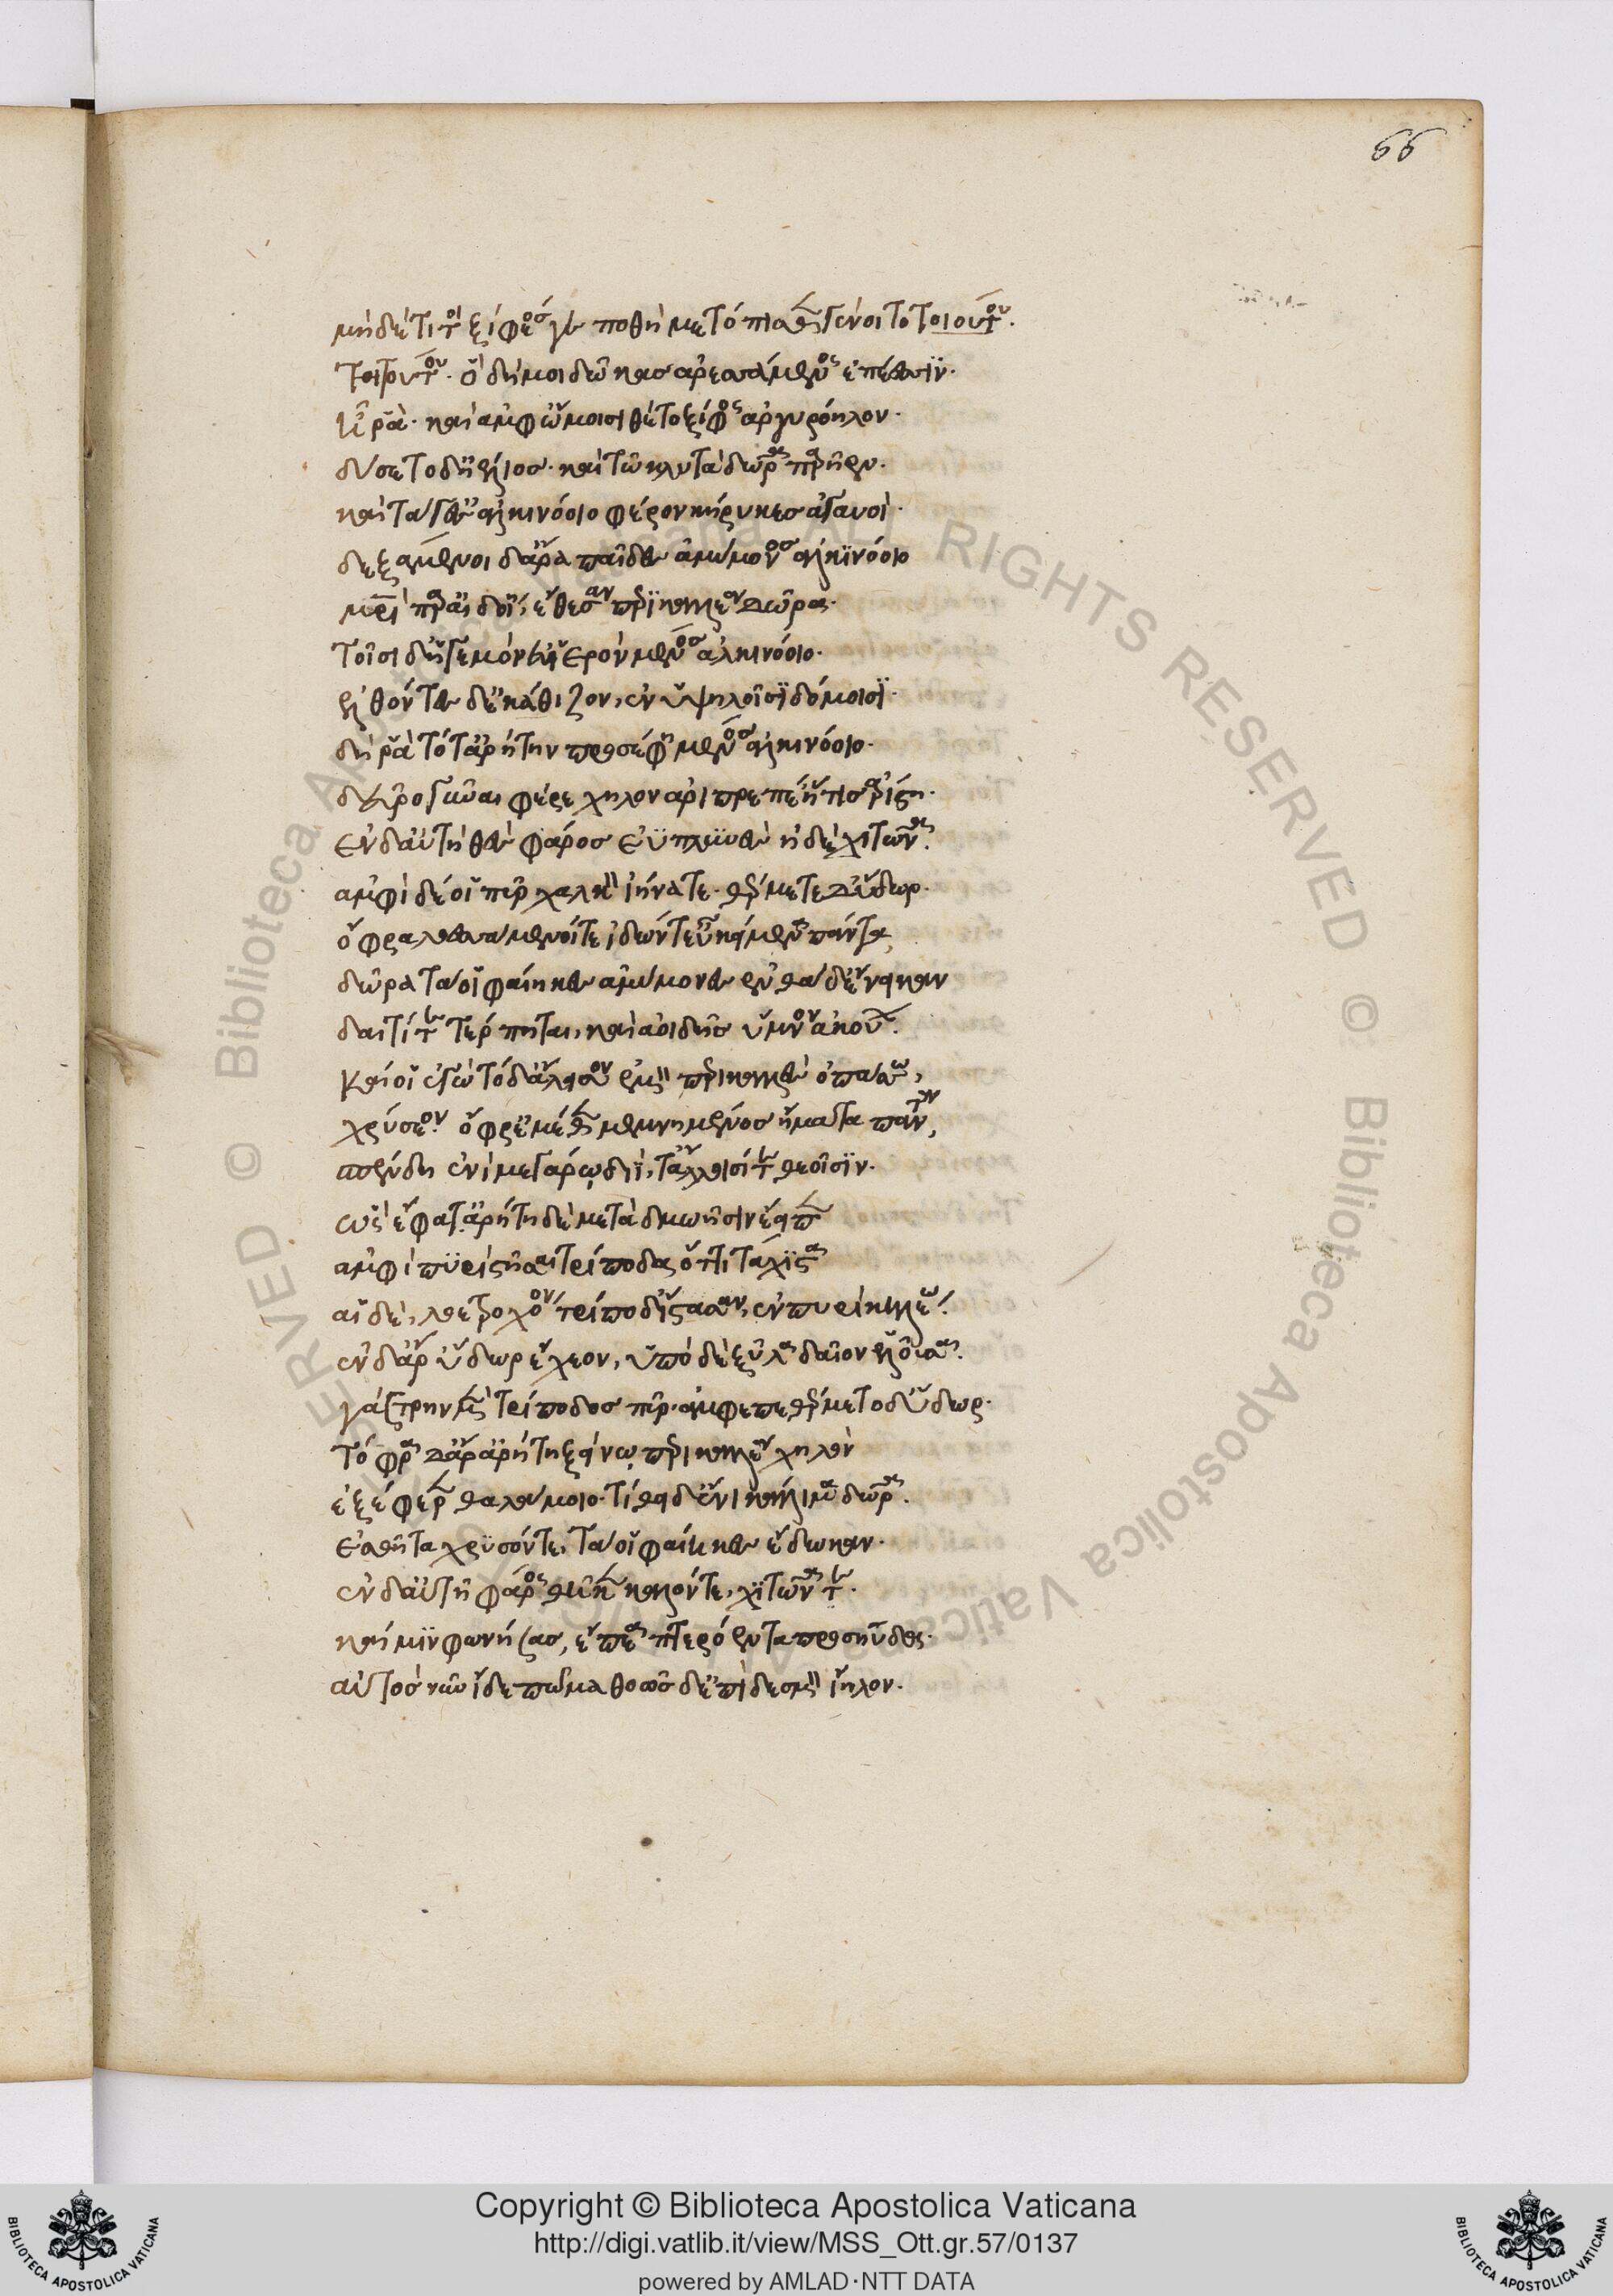 μηδέ τι τοὶ ξίφεός γε ποθὴ μετόπισθεν γένοιτο τοιούτου.
τοιούτου. ὃ δή μοι δῶκας ἀρεσσάμενος ἐπέεσσιν.
ἦ ῥα. καὶ ἀμφ' ὤμοισι θέτο ξίφος ἀργυρόηλον.
δύσετο δ' ἠέλιος. καὶ τῶ κλυτὰ δῶρα παρῆεν.
καὶ τά γ' ἐς ἀλκινόοιο φέρον κήρυκες ἀγαυοί.
δεξάμενοι δ' ἄρα παῖδες ἀμύμονος ἀλκινόοιο
μητρὶ παρ' αἰδοίη, ἔθεσαν περικαλλέα δῶρα.
τοῖσι δ' ἡγεμόνευ' ἱερὸν μένος ἀλκινόοιο.
ἐλθόντες δὲ κάθιζον, ἐν ὑψηλοῖσι δόμοισι.
δή ῥα τότ' ἀρήτην προσέφη μένος ἀλκινόοιο.
δεῦρο γύναι φέρε χηλὸν ἀριπρεπέ' ἥτις ἀρίστη.
ἐν δ' αὐτὴ θὲς φᾶρος ἐϋπλυνὲς ἠδὲ χιτῶνα.
ἀμφὶ δέ οἱ πυρὶ χαλκὸν ἰήνατε. θέρμετε δ' ὕδωρ.
ὄφρα λοεσσάμενός τε ἰδών τ' εὖ κείμενα πάντα
δῶρα τά οἱ φαίηκες ἀμύμονες ἐνθάδ' ἔνεικαν
δαιτί τε τέρπηται, καὶ ἀοιδῆς ὕμνον ἀκούων.
καί οἱ ἐγὼ τόδ' ἄλεισον ἐμὸν περικαλλὲς ὀπάσσω,
χρύσεον. ὄφρ' ἐμέθεν μεμνημένος ἤματα πάντα,
σπένδη ἐνὶ μεγάρω διί, τ' ἄλλοισί τε θεοῖσιν.
ὣς ἔφατ' ἀρήτη δὲ μετὰ δμωῇσιν ἔειπεν
ἀμφὶ πυρὶ στῆσαι τρίποδα ὅττι τάχιστα
αἱ δὲ, λοετροχόον τρίποδ' ἵστασαν, ἐν πυρὶ κηλέω.
ἐν δ' ἄρ' ὕδωρ ἔχεον, ὑπὸ δὲ ξύλα δαῖον ἑλοῦσαι.
γάστρην μὲν τρίποδος πῦρ ἄμφεπε θέρμετο δ' ὕδωρ.
τόφρα δ' ἄρ' ἀρήτη ξείνω περικαλλέα χηλὸν
ἐξέφερεν θαλάμοιο. τίθει δ' ἐνὶ κάλλιμα δῶρα.
ἐσθῆτα χρυσόν τε, τά οἱ φαίηκες ἔδωκαν.
ἐν δ' αὐτῇ φᾶρος θῆκεν καλόν τε, χιτῶνά τε.
καί μιν φωνήσας, ἔπεα πτερόεντα προσηύδα.
αὐτὸς νῦν ἴδε πῶμα θοῶς δ' ἐπὶ δεσμὸν ἴηλον.
66
Copyright © Biblioteca Apostolica Vaticana
http://digi.vatlib.it/view/MSS_Ott.gr.57/0137
powered by AMLAD·NTT DATA